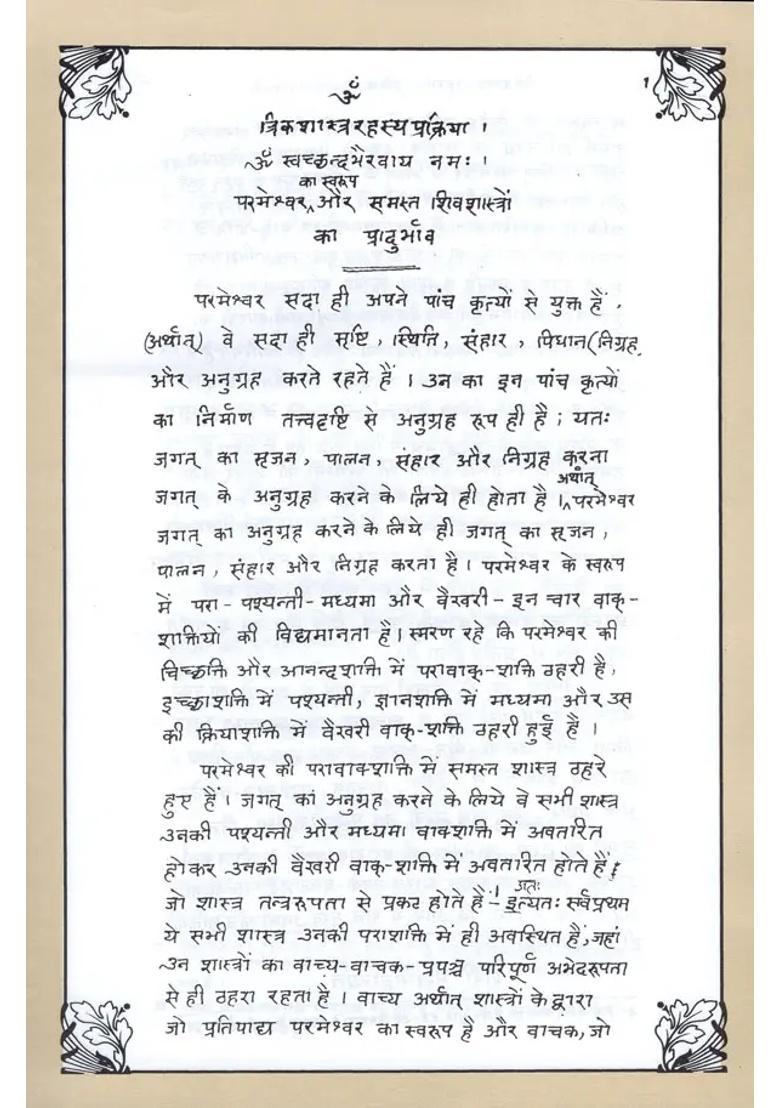 ॐ
1
त्रिकशास्त्ररहस्यप्रक्रिया ।
ॐ स्वच्छन्दभैरवाय नमः ।
का स्वरूप
परमेश्वर ‸ और समस्त शिवशास्त्रों
का प्रादुर्भाव
परमेश्वर सदा ही अपने पांच कृत्यों से युक्त हैं ,
(अर्थात्) वे सदा ही सृष्टि , स्थिति , संहार , पिधान (निग्रह,
और अनुग्रह करते रहते हैं । उन का इन पांच कृत्यों
का निर्माण तत्त्वदृष्टि से अनुग्रह रूप ही है ; यतः
जगत् का सृजन , पालन , संहार और निग्रह करना
अर्थात्
जगत् के अनुग्रह करने के लिये ही होता है । ‸ परमेश्वर
जगत् का अनुग्रह करने के लिये ही जगत् का सृजन ,
पालन , संहार और निग्रह करता है । परमेश्वर के स्वरूप
में परा - पश्यन्ती - मध्यमा और वैखरी - इन चार वाक् -
शक्तियों की विद्यमानता है । स्मरण रहे कि परमेश्वर की
चिच्छक्ति और आनन्दशक्ति में परावाक् - शक्ति ठहरी है ,
इच्छाशक्ति में पश्यन्ती , ज्ञानशक्ति में मध्यमा और उस
की क्रियाशक्ति में वैखरी वाक् - शक्ति ठहरी हुई है ।
परमेश्वर की परावाक्शक्ति में समस्त शास्त्र ठहरे
हुए हैं । जगत् का अनुग्रह करने के लिये वे सभी शास्त्र
उनकी पश्यन्ती और मध्यमा वाक्शक्ति में अवतारित
होकर उनकी वैखरी वाक् - शक्ति में अवतारित होते हैं ;
अतः
जो शास्त्र तन्त्ररूपता से प्रकट होते हैं । इत्यतः सर्वप्रथम
ये सभी शास्त्र उनकी पराशक्ति में ही अवस्थित हैं , जहां
उन शास्त्रों का वाच्य - वाचक - प्रपञ्च परिपूर्ण अभेदरूपता
से ही ठहरा रहता है । वाच्य अर्थात् शास्त्रों के द्वारा
जो प्रतिपाद्य परमेश्वर का स्वरूप है और वाचक , जो